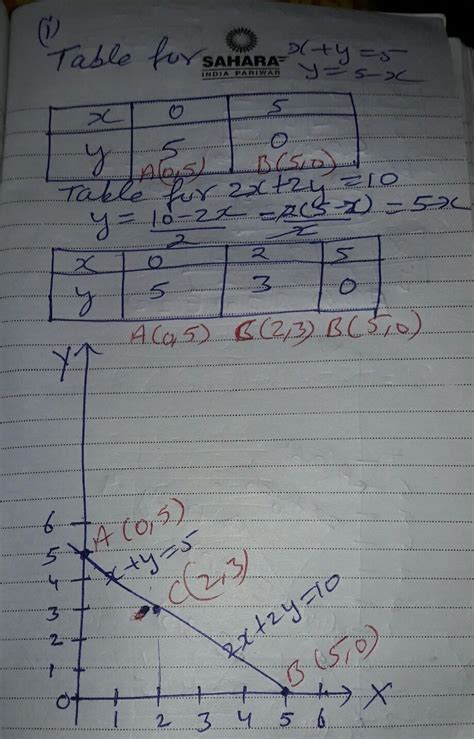 (i)
Table fur SAHARA x+y=5
INDIA PARIWAR y=5-x
x 0 5
y 5 0
A(0,5) B(5,0)
Table fur 2x+2y=10
y=10-2x/2=2(5-x)/x=5-x
x 0 2 5
y 5 3 0
A(0,5) C(2,3) B(5,0)
Y
6
A(0,5)
5
x+y=5
4
C(2,3)
3
2x+2y=10
2
B(5,0)
1
0 1 2 3 4 5 6 X